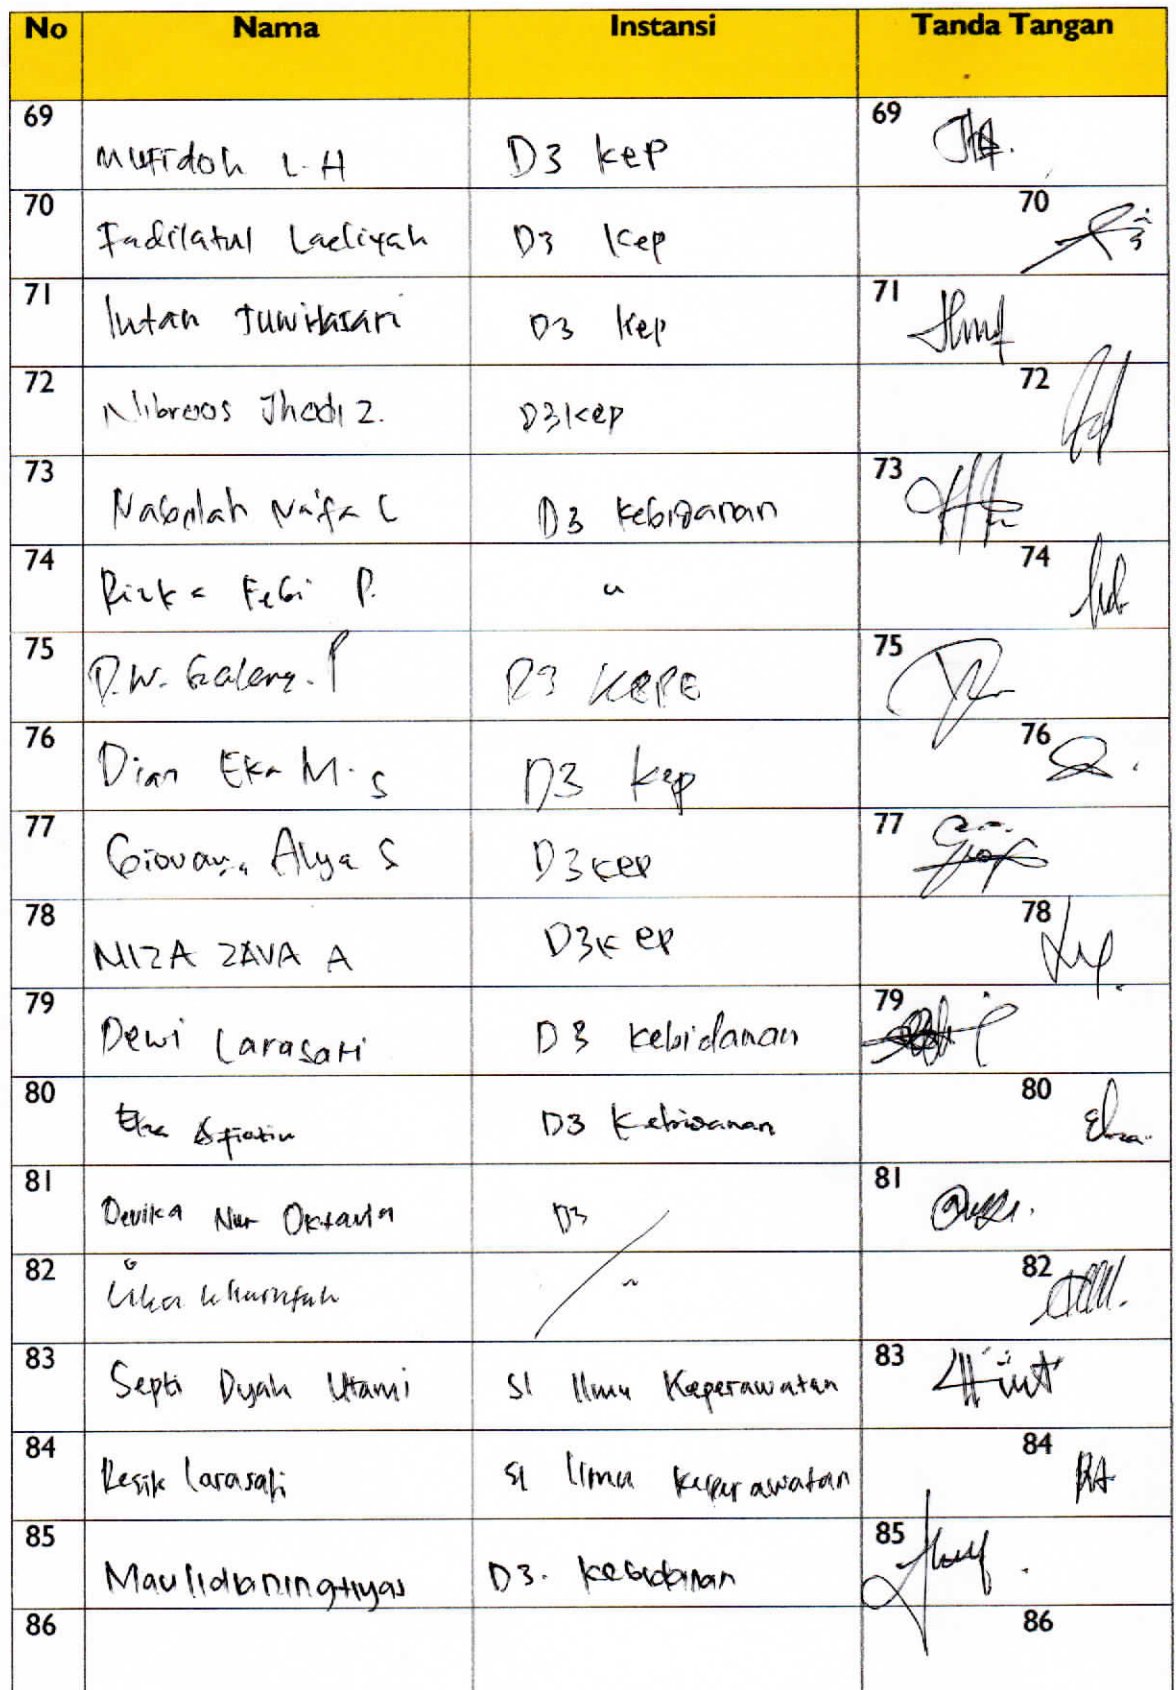 No Nama Instansi Tanda Tangan
69 Mufidoh L.H D3 kep 69
70 Fadilatul Laeliyah D3 Kep 70
71 Intan Juwitasari D3 Kep 71
72 Nibroos Jhodi Z. D3 kep 72
73 Nabilah Naifa C D3 Kebidanan 73
74 Rizka Febi P. " 74
75 D.W. Galeng. P D3 KEPE 75
76 Dian Eka M. S D3 Kep 76
77 Giovany Alya S D3 kep 77
78 NIZA ZAVA A D3 kep 78
79 Dewi Larasati D3 Kebidanan 79
80 Eka D3 Kebidanan 80 Eka
81 Devika Nur Oktavia D3 81
82 " 82
83 Septi Dyah Utami S1 Ilmu Keperawatan 83
84 Resik Larasati S1 Ilmu Keperawatan 84
85 Maulidianingtiyas D3. Kebidanan 85
86 86